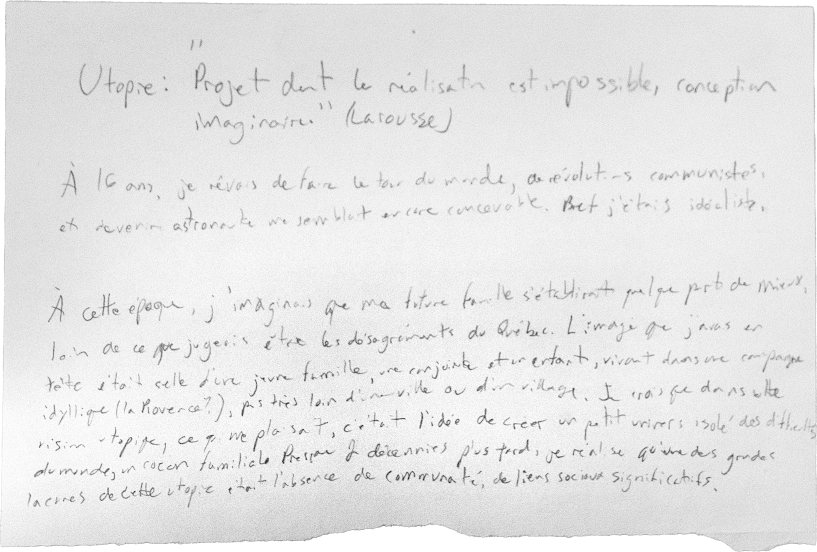 Utopie: "Projet dont la réalisatn est impossible, conception
imaginaire." (Larousse)
À 16 ans, je rêvais de faire le tour du monde, de révolutions communistes,
et devenir astronaute me semblait encore concevable. Bref j'étais idéaliste.
À cette époque, j'imaginais que ma future famille s'établirait quelque part de mieux,
loin de ce que jugeais être les désagréments du Québec. L'image que j'avais en
tête était celle d'une jeune famille, une conjointe et un enfant, vivant dans une campagne
idyllique (la Provence?), pas très loin d'une ville ou d'un village. Je crois que dans cette
vision utopique, ce qui me plaisait, c'était l'idée de créer un petit univers isolé des difficultés
du monde, un cocon familial. Presque 2 décennies plus tard, je réalise qu'une des grandes
lacunes de cette utopie était l'absence de communauté, de liens sociaux significatifs.